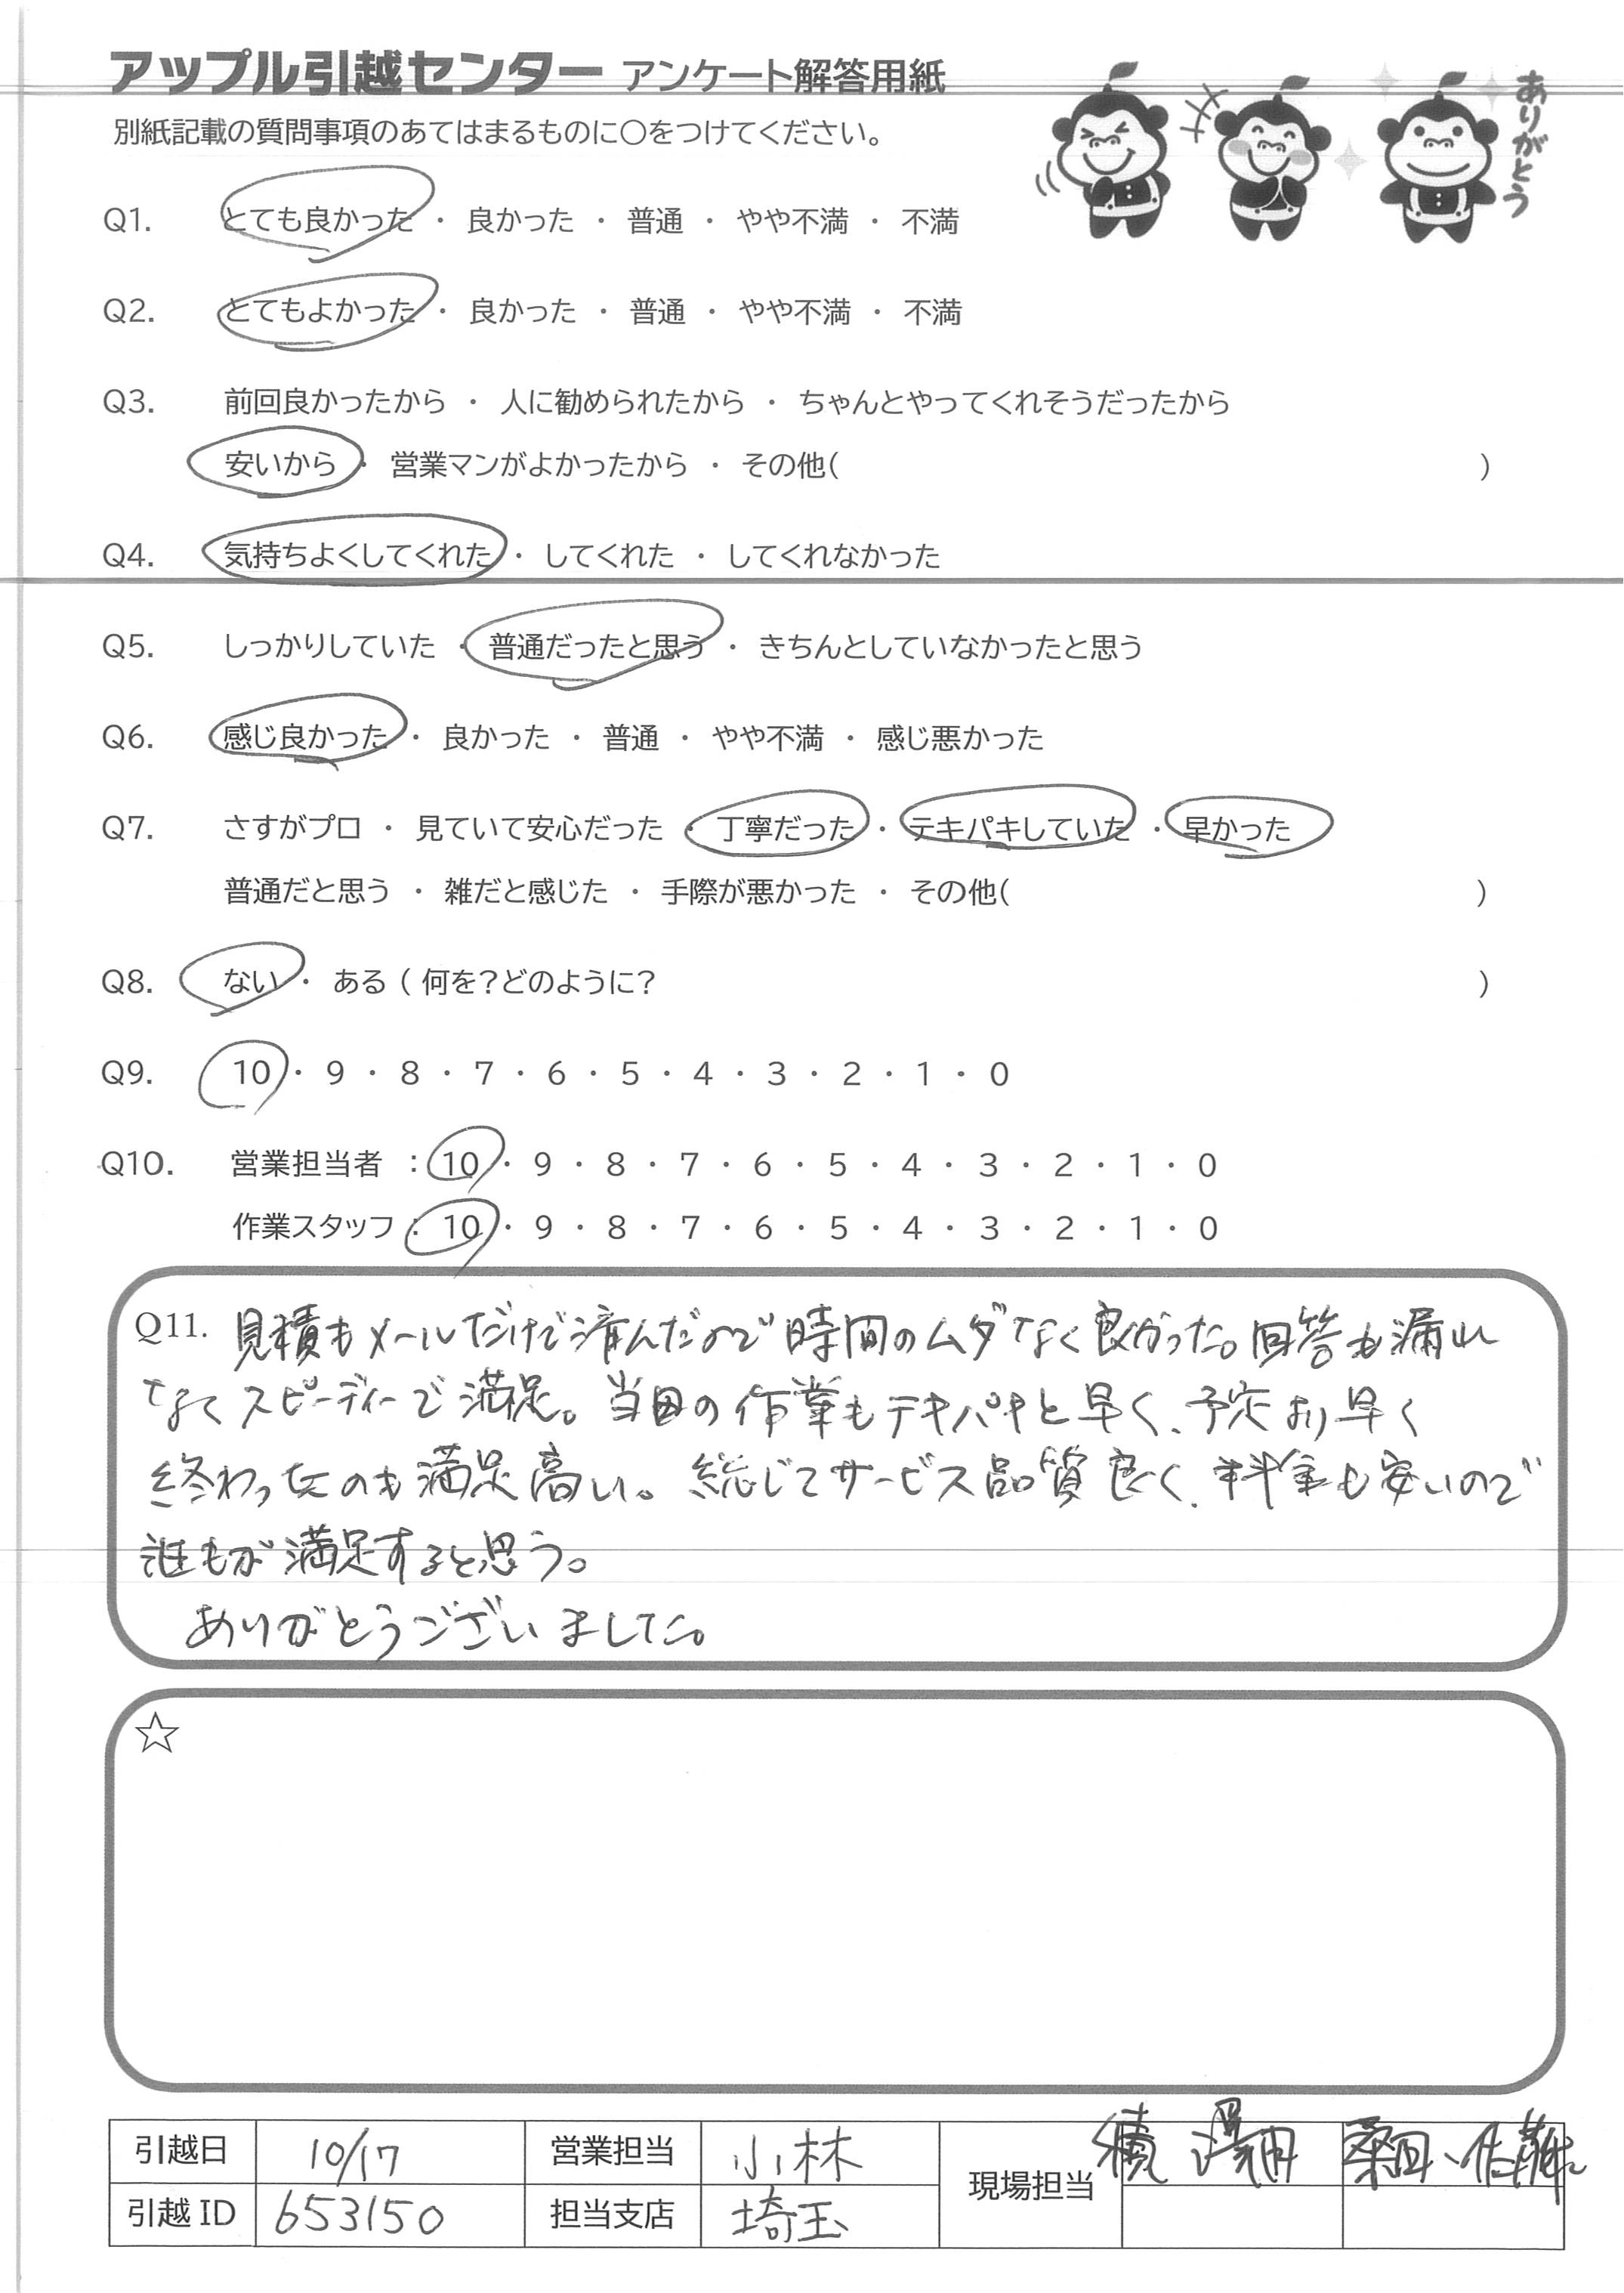 アップル引越センター アンケート解答用紙
ありがとう
別紙記載の質問事項のあてはまるものに〇をつけてください。
Q1. とても良かった ・ 良かった ・ 普通 ・ やや不満 ・ 不満
Q2. とてもよかった ・ 良かった ・ 普通 ・ やや不満 ・ 不満
Q3. 前回良かったから ・ 人に勧められたから ・ ちゃんとやってくれそうだったから
安いから ・ 営業マンがよかったから ・ その他( )
Q4. 気持ちよくしてくれた ・ してくれた ・ してくれなかった
Q5. しっかりしていた ・ 普通だったと思う ・ きちんとしていなかったと思う
Q6. 感じ良かった ・ 良かった ・ 普通 ・ やや不満 ・ 感じ悪かった
Q7. さすがプロ ・ 見ていて安心だった ・ 丁寧だった ・ テキパキしていた ・ 早かった
普通だと思う ・ 雑だと感じた ・ 手際が悪かった ・ その他( )
Q8. ない ・ ある ( 何を?どのように? )
Q9. 10 ・ 9 ・ 8 ・ 7 ・ 6 ・ 5 ・ 4 ・ 3 ・ 2 ・ 1 ・ 0
Q10. 営業担当者 : 10 ・ 9 ・ 8 ・ 7 ・ 6 ・ 5 ・ 4 ・ 3 ・ 2 ・ 1 ・ 0
作業スタッフ : 10 ・ 9 ・ 8 ・ 7 ・ 6 ・ 5 ・ 4 ・ 3 ・ 2 ・ 1 ・ 0
Q11. 見積もメールだけで済んだので時間のムダなく良かった。回答も漏れ
なくスピーディーで満足。当日の作業もテキパキと早く、予定より早く
終わったのも満足高い。総じてサービス品質良く、料金も安いので
誰もが満足すると思う。
ありがとうございました。
☆
引越日 10/17 営業担当 小林 現場担当 湯田 桑田・佐藤
引越ID 653150 担当支店 埼玉